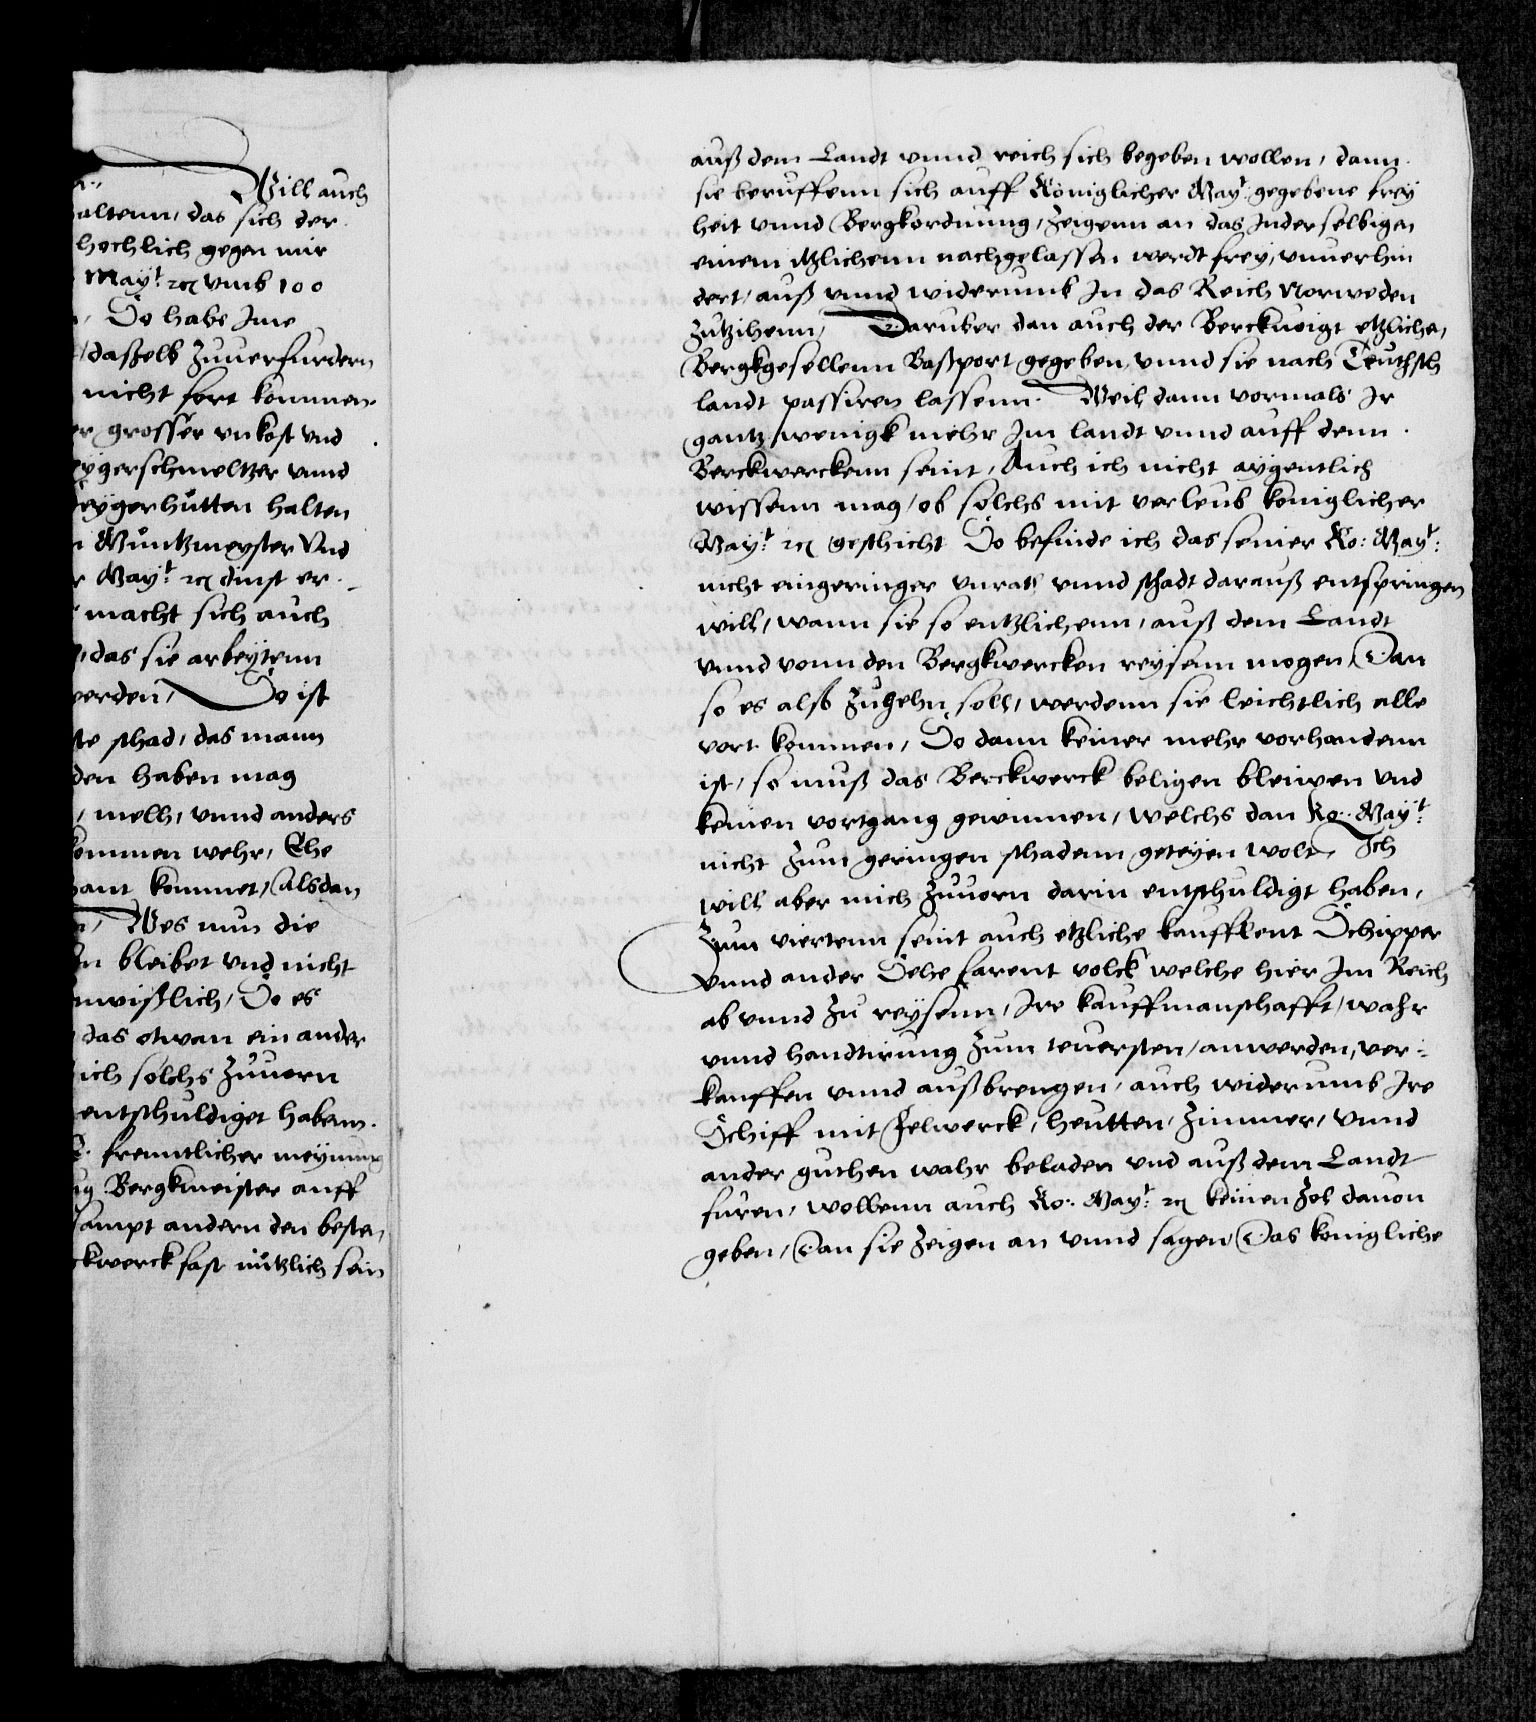 Will auch
altenn, das sich der
hochlich gegen mir
Mayt: rc vmb 100
So habe Ime
, daßelb Zuuerfurdern
nicht fort kommen
er grosser vnkost vnd
ygerschmeltzer vnnd
eygerhutten halten
Muntzmeyster Vnd
r Mayt: rc dinst er
macht sich auch
, das sie arbeytenn
erden, So ist
te schad, das mann
den haben mag
, mell, vnnd anders
ommen wehr, Ehe
ant kommet, Alsdan
Wes nun die
n bleibet vnd nicht
nwißlich, So es
das etwan ein ander
ich solchs Zuuorn
entschuldiget habenn.
freuntlicher meynung
ug Bergkmeister auff
sampt andern den beste,
ckwerck fast nutzlich sein
auß dem Landt vnnd reich sich begeben wollen, dann
sie beruffenn sich auff Königlicher Mayt: gegebene frey
heit vnnd Bergkordnung, Zeigenn an das Inderselbigen
einem itzlichenn nachgelassen werdt frey, vnuerhin
dert, auß vnnd widerumb In das Reich Norweden
Zutzihenn, Daruber dan auch der Berckuoigt etzliche,
Bergkgesellenn Baßport gegeben, vnnd sie nach Teuthsch
landt passiren lassenn. Weil dann vormals Ir
gantz wenigk mehr Im landt vnnd auff denn
Berckwerckenn seint, Auch ich nicht aygentlich
wissenn mag, ob solchs mit verleub koniglicher
Mayt: rc geschicht So befinde ich das seiner Ko: Mayt:
nicht eingeringer vnrath vnnd schadt darauß entspringen
will, wann sie so entzlichenn, auß dem Landt
vnnd vonn den Bergkwercken reysenn mogen, Dan
so es also Zugehn soll, werdenn sie leichtlich alle
vort kommen, So dann keiner mehr vorhandenn
ist, so muß das Berckwerck beligen bleiwen vnd
keinen vortgang gewinnen, welchs dan Ko: Mayt:
nicht Zum geringen schadenn geteyen wolt, Ich
will aber mich Zuuorn darin entschuldigt haben,
Zum viertenn seint auch etzliche kauffleut Schipper
vnnd ander Sehe farent volck welche hier Im Reich
ab vnnd Zu reysenn, Ire kauffmanschafft, wahr
vnnd handtirung Zum teuersten, anwerden, ver:
kauffen vnnd außbrengen, auch widerumb Ire
Schiff mit Felwerck, heutten, Zimmer, vnnd
ander guthen wahr beladen vnd auß dem Landt
furen, wollenn auch Ko: Mayt: rc keinen Zol dauon
geben, Dan sie Zeigen an vnnd sagen Das konigliche